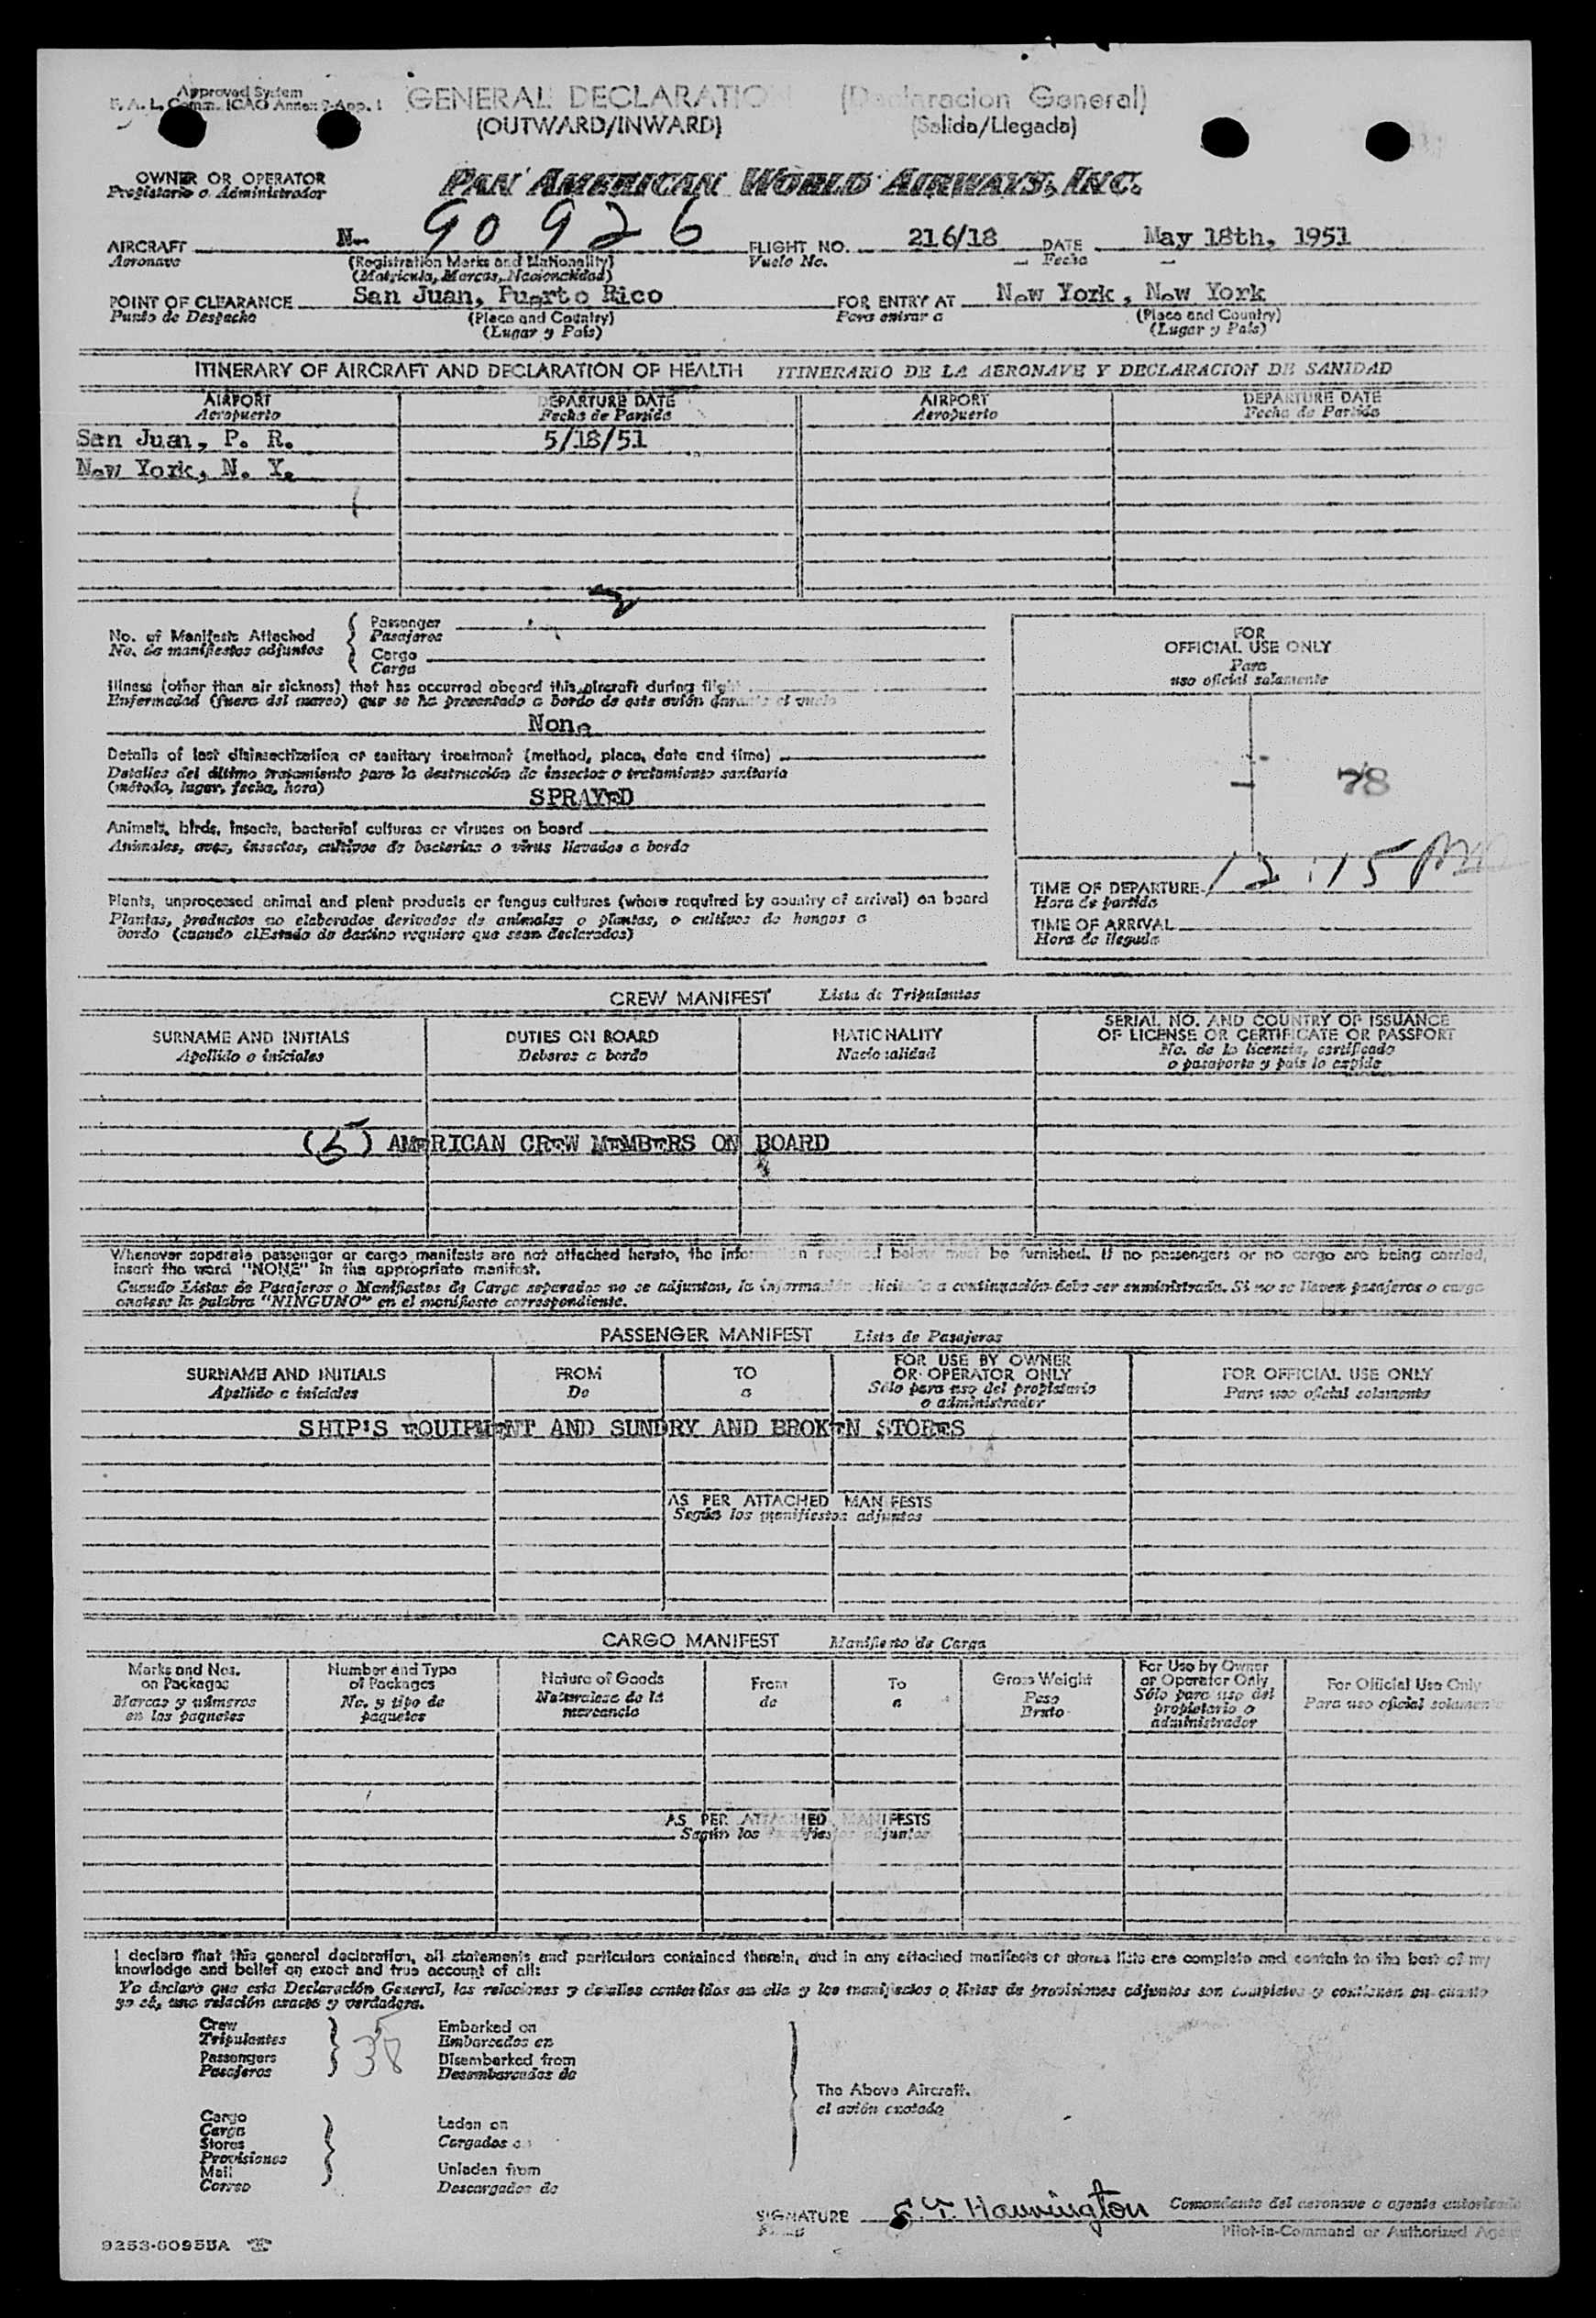 Approved System
F. A. L. Comm. ICAO Annex 9-App. 1
GENERAL DECLARATION (Declaracion General)
(OUTWARD/INWARD) (Salida/Llegada)
OWNER OR OPERATOR PAN AMERICAN WORLD AIRWAYS, INC.
Propietario o Administrador
AIRCRAFT N- 90926 FLIGHT NO. 216/18 DATE May 18th, 1951
Aeronave (Registration Marks and Nationality) Vuelo No. Fecha
(Matricula, Marcas, Nacionalidad)
POINT OF CLEARANCE San Juan, Puerto Rico FOR ENTRY AT New York, New York
Punto de Despacho (Place and Country) Para entrar a (Place and Country)
(Lugar y País) (Lugar y País)
ITINERARY OF AIRCRAFT AND DECLARATION OF HEALTH ITINERARIO DE LA AERONAVE Y DECLARACION DE SANIDAD
AIRPORT DEPARTURE DATE AIRPORT DEPARTURE DATE
Aeropuerto Fecha de Partida Aeropuerto Fecha de Partida
San Juan, P. R. 5/18/51
New York, N. Y.
No. of Manifests Attached
No. de manifiestos adjuntos
Passenger
Pasajeros
Cargo
Carga
FOR
OFFICIAL USE ONLY
Para
uso oficial solamente
Illness (other than air sickness) that has occurred aboard this aircraft during flight
Enfermedad (fuera del mareo) que se ha presentado a bordo de este avión durante el vuelo
None
Details of last disinsectization or sanitary treatment (method, place, date and time)
Detalles del último tratamiento para la destrucción de insectos o tratamiento sanitario
(método, lugar, fecha, hora)
78
SPRAYED
Animals, birds, insects, bacterial cultures or viruses on board
Animales, aves, insectos, cultivos de bacterias o virus llevados a bordo
TIME OF DEPARTURE 12:15
Hora de partida
TIME OF ARRIVAL
Hora de llegada
Plants, unprocessed animal and plant products or fungus cultures (where required by country of arrival) on board
Plantas, productos no elaborados derivados de animales o plantas, o cultivos de hongos a
bordo (cuando elEstado de destino requiere que sean declarados)
CREW MANIFEST Lista de Tripulantes
SURNAME AND INITIALS DUTIES ON BOARD NATIONALITY SERIAL NO. AND COUNTRY OF ISSUANCE
OF LICENSE OR CERTIFICATE OR PASSPORT
Apellido o iniciales Deberes a bordo Nacionalidad No. de la licencia, certificado
o pasaporte y país lo expide
(5) AMERICAN CREW MEMBERS ON BOARD
Whenever separate passenger or cargo manifests are not attached hereto, the information required below must be furnished. If no passengers or no cargo are being carried,
insert the word "NONE" in the appropriate manifest.
Cuando Listas de Pasajeros o Manifiestos de Carga separados no se adjuntan, la información solicitada a continuación debe ser suministrada. Si no se llevan pasajeros o carga
anotese la palabra "NINGUNO" en el manifiesto correspondiente.
PASSENGER MANIFEST Lista de Pasajeros
SURNAME AND INITIALS FROM TO FOR USE BY OWNER
OR OPERATOR ONLY FOR OFFICIAL USE ONLY
Apellido e iniciales De a Sólo para uso del propietario
o administrador Para uso oficial solamente
SHIP'S EQUIPMENT AND SUNDRY AND BROKEN STORES
AS PER ATTACHED MANIFESTS
Según los manifiestos adjuntos
CARGO MANIFEST Manifiesto de Carga
Marks and Nos.
on Packages
Marcas y números
en los paquetes
Number and Type
of Packages
No. y tipo de
paquetes
Nature of Goods
Naturaleza de la
mercancía
From
de
To
a
Gross Weight
Peso
Bruto
For Use by Owner
or Operator Only
Sólo para uso del
propietario o
administrador
For Official Use Only
Para uso oficial solamente
AS PER ATTACHED MANIFESTS
Según los manifiestos adjuntos
I declare that this general declaration, all statements and particulars contained therein, and in any attached manifests or stores lists are complete and contain to the best of my
knowledge and belief an exact and true account of all:
Yo declaro que esta Declaración General, las relaciones y detalles contenidos en ella y los manifiestos o listas de provisiones adjuntos son completos y contienen en cuanto
yo sé, una relación exacta y verdadera.
Crew 5 Embarked on
Tripulantes Embarcados en
Passengers 38 Disembarked from
Pasajeros Desembarcados de
The Above Aircraft.
el avión anotado
Cargo Laden on
Carga
Stores Cargados en
Provisiones
Mail Unladen from
Correo Descargados de
SIGNATURE Comandante del aeronave o agente autorizado
Firma Pilot-in-Command or Authorized Agent
9253-60955A